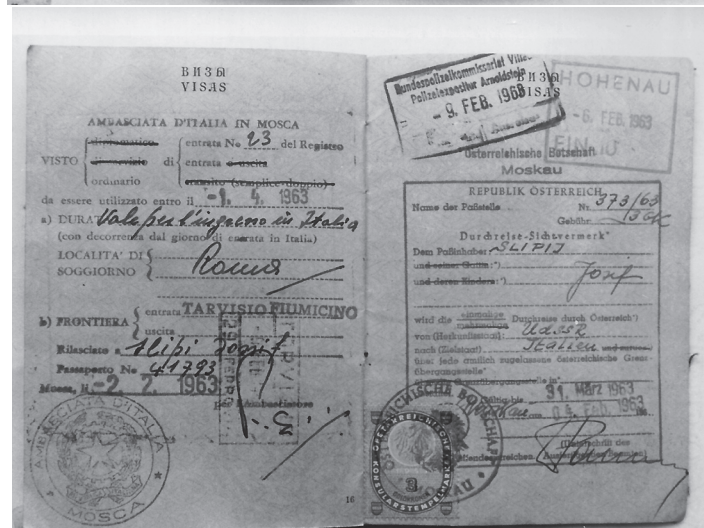 ВИЗЫ
VISAS
AMBASCIATA D'ITALIA IN MOSCA
diplomatico
entrata No 23 del Registro
VISTO di servizio di entrata e uscita
ordinario
transito (semplice-doppio)
da essere utilizzato entro il -1. 4. 1963
a) DURATA Vale per l'ingresso in Italia
(con decorrenza dal giorno di entrata in Italia)
LOCALITA' DI
SOGGIORNO
Roma
b) FRONTIERA
entrata TARVISIO FIUMICINO
uscita
Rilasciato a Slipi Josif
Passaporto No 41793
Mosca, il -2. 2. 1963
per l'Ambasciatore
AMBASCIATA D'ITALIA
MOSCA
16
ВИЗЫ
VISAS
Bundespolizeikommissariat
Polizeiexpositur Arnoldstein
- 9. FEB. 1963
HOHENAU
- 6. FEB. 1963
Österreichische Botschaft
Moskau
REPUBLIK ÖSTERREICH
Name der Paßstelle. Nr. 373/63
Gebühr
Durchreise-Sichtvermerk*
Dem Paßinhaber SLIPIJ
und seiner Gattin:*) Josif
und deren Kindern:*)
wird die einmalige Durchreise durch Österreich*)
mehrmalige
von (Herkunftsstaat): UdSSR
nach (Zielstaat): Italien
über jede amtlich zugelassene österreichische Grenz-
übergangsstelle*
Gültig bis 31. März 1963
Moskau, am 04. Feb. 1963
(Unterschrift des
ÖSTERREICHISCHE BOTSCHAFT
MOSKAU
KONSULARSTEMPELMARKE